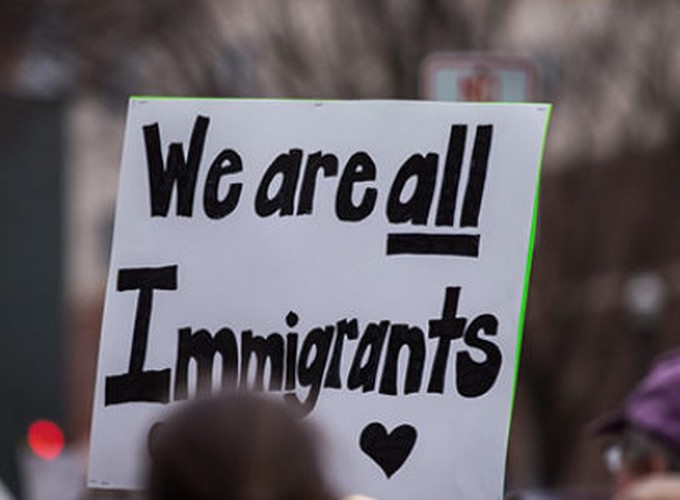 We are all
Immigrants